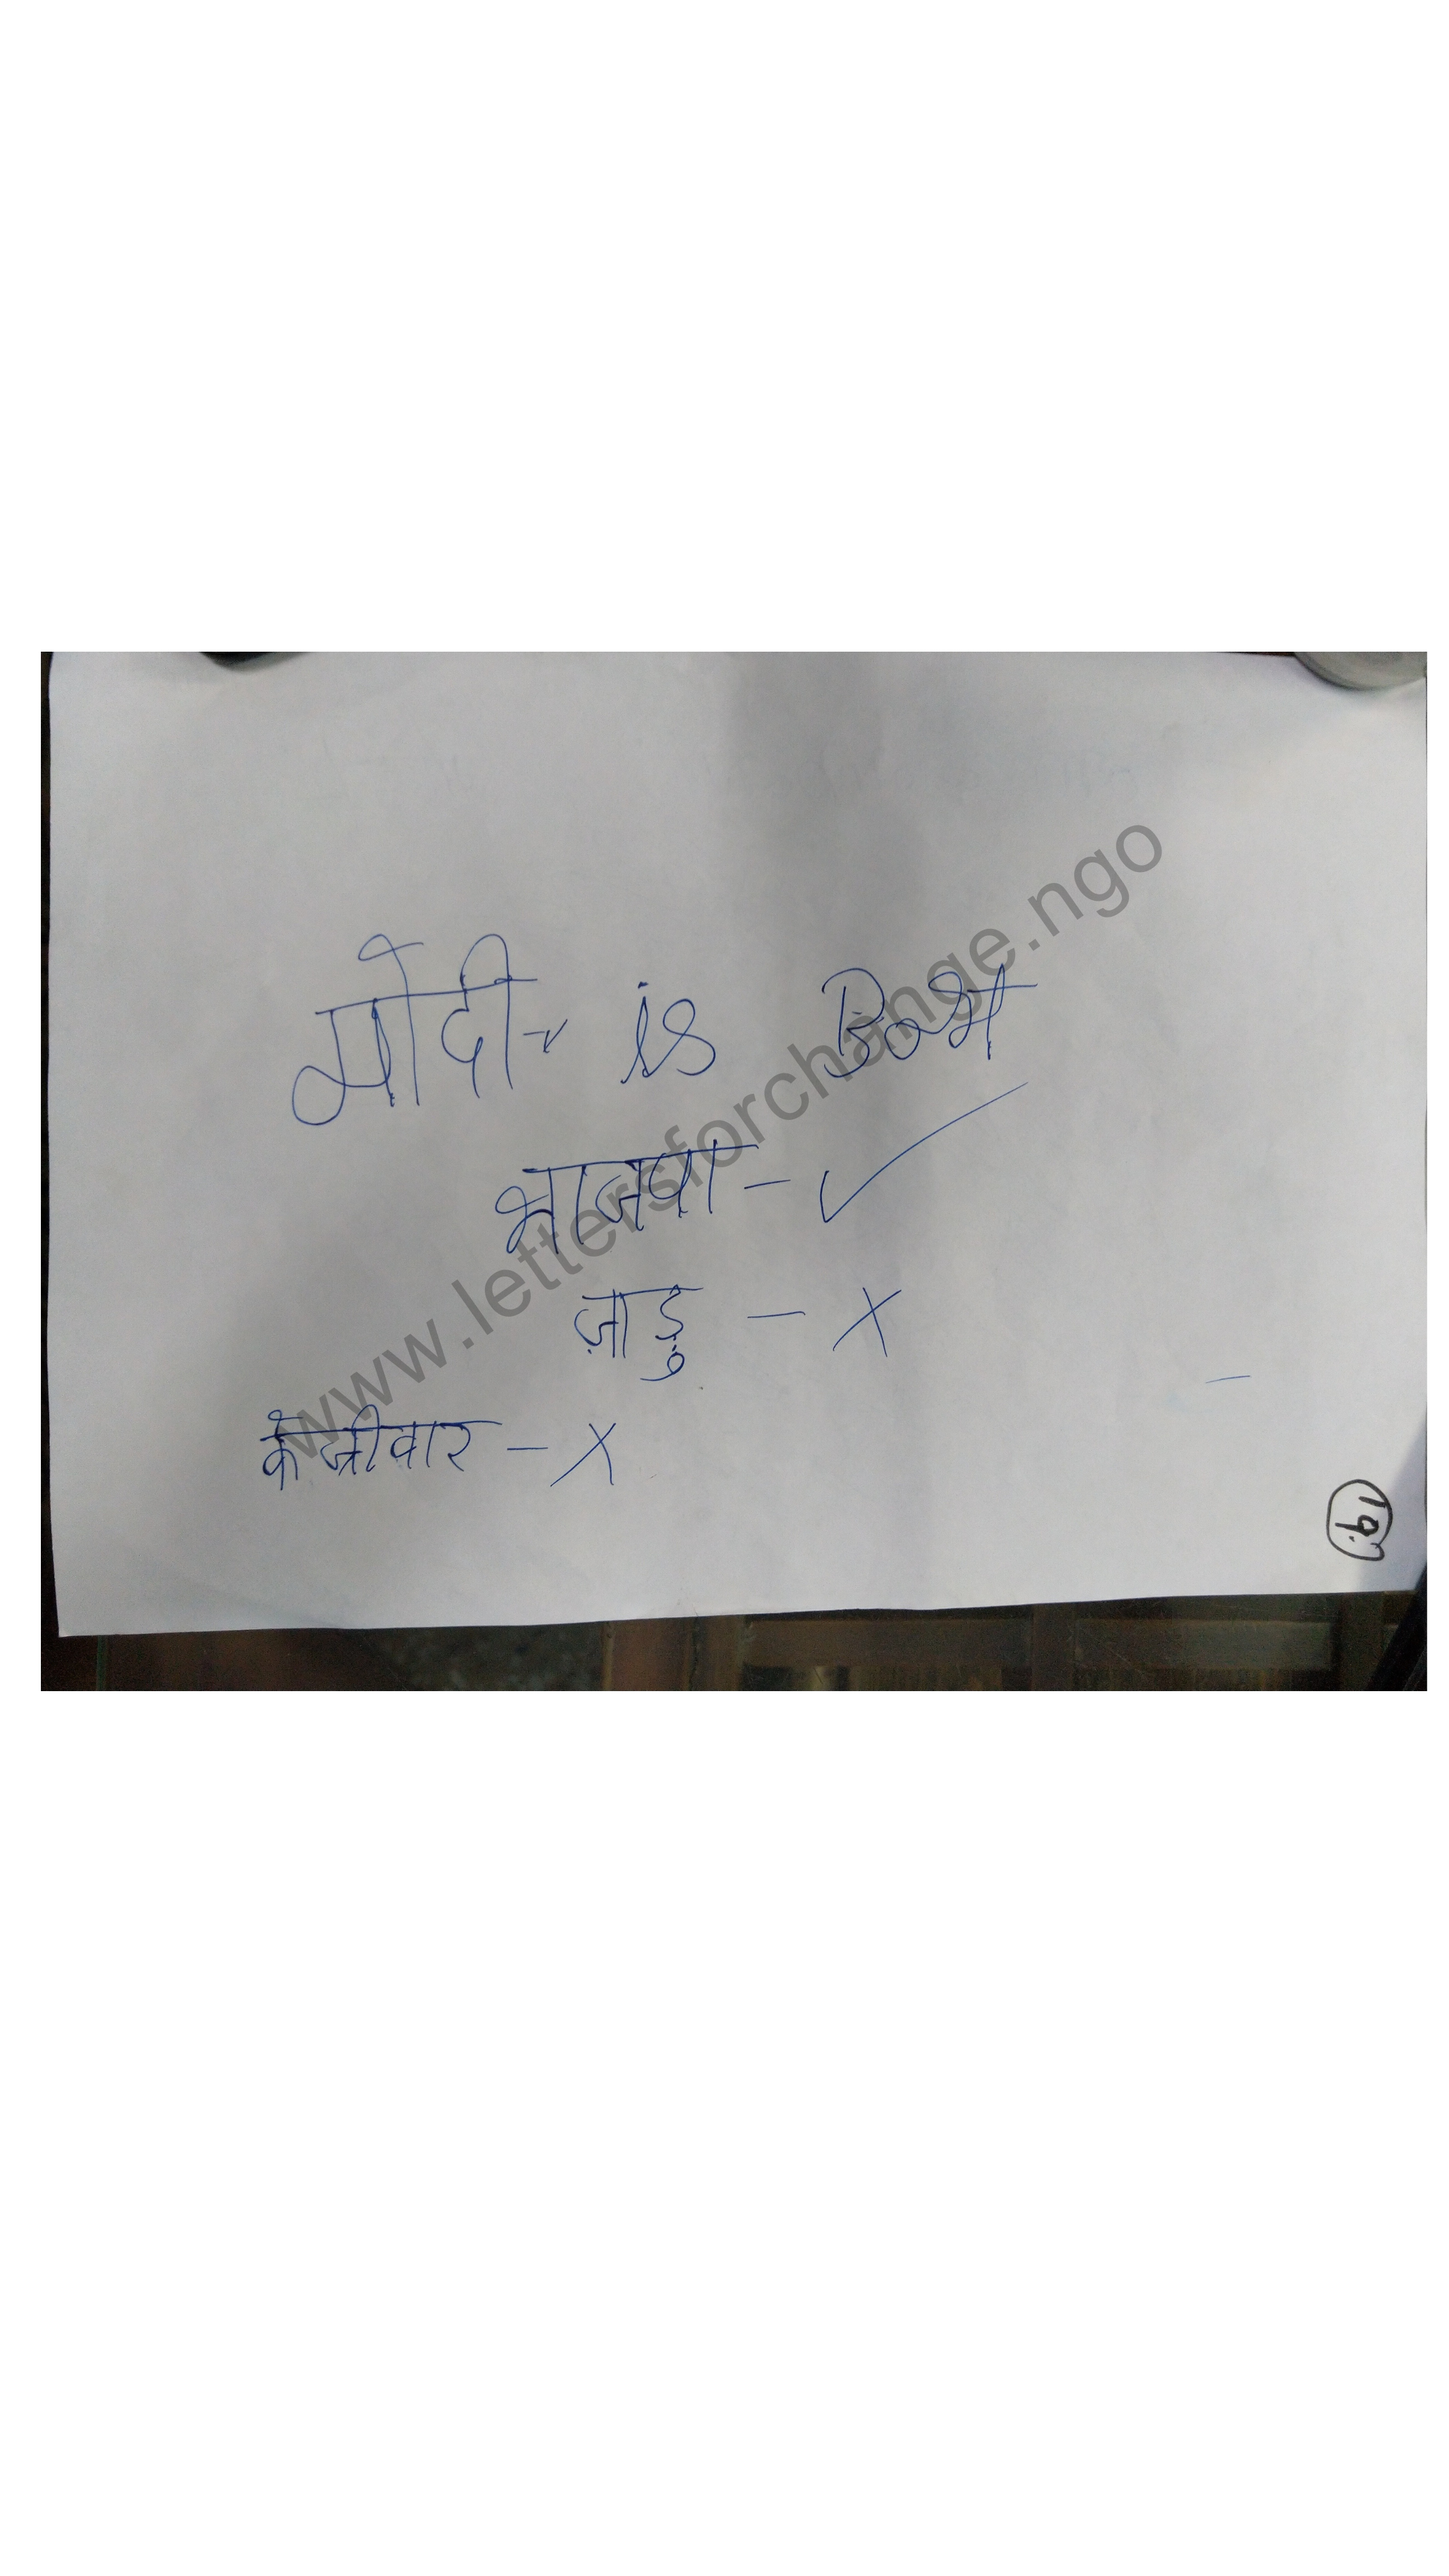 मोदी-✓ is Best
भाजपा - ✓
ज़ाड़ु - X
केजीवार - X
www.lettersforchange.ngo